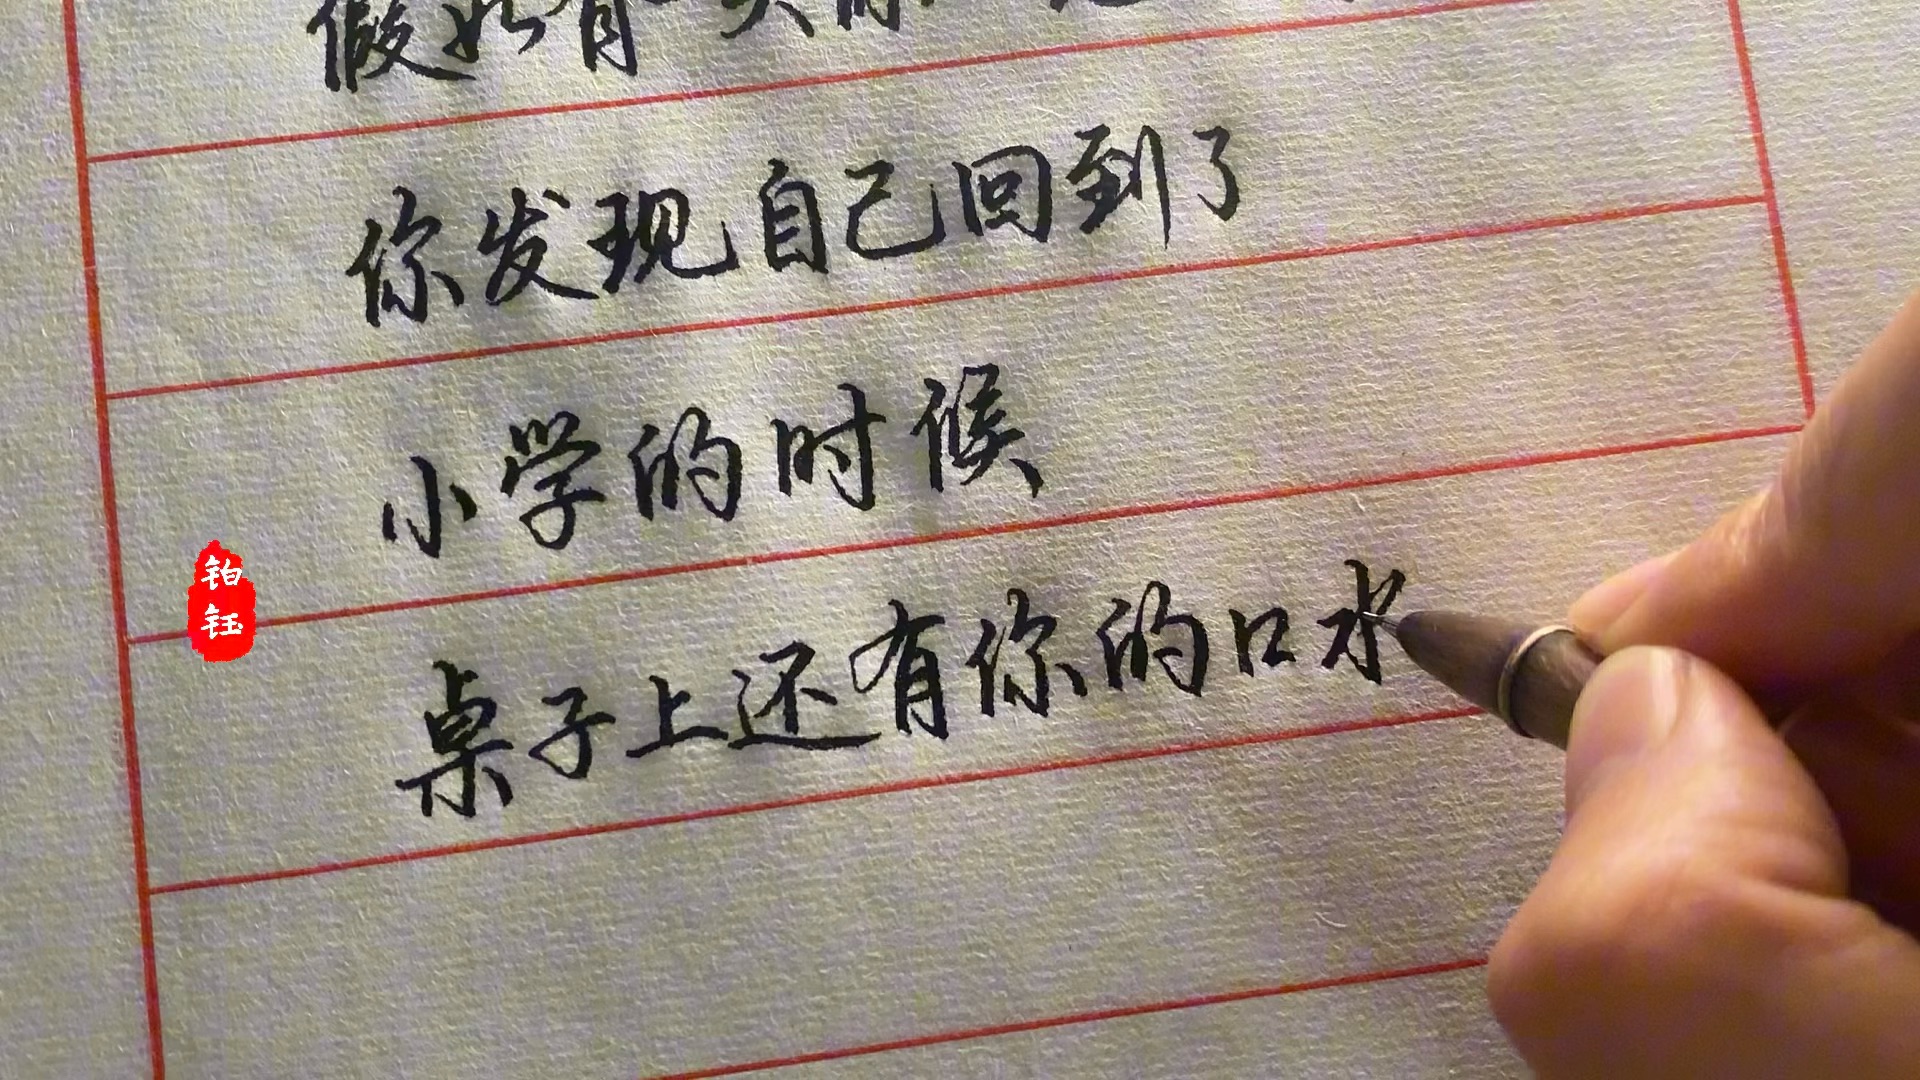 假如有一天你
你发现自己回到了
小学的时候
桌子上还有你的口水
铂钰